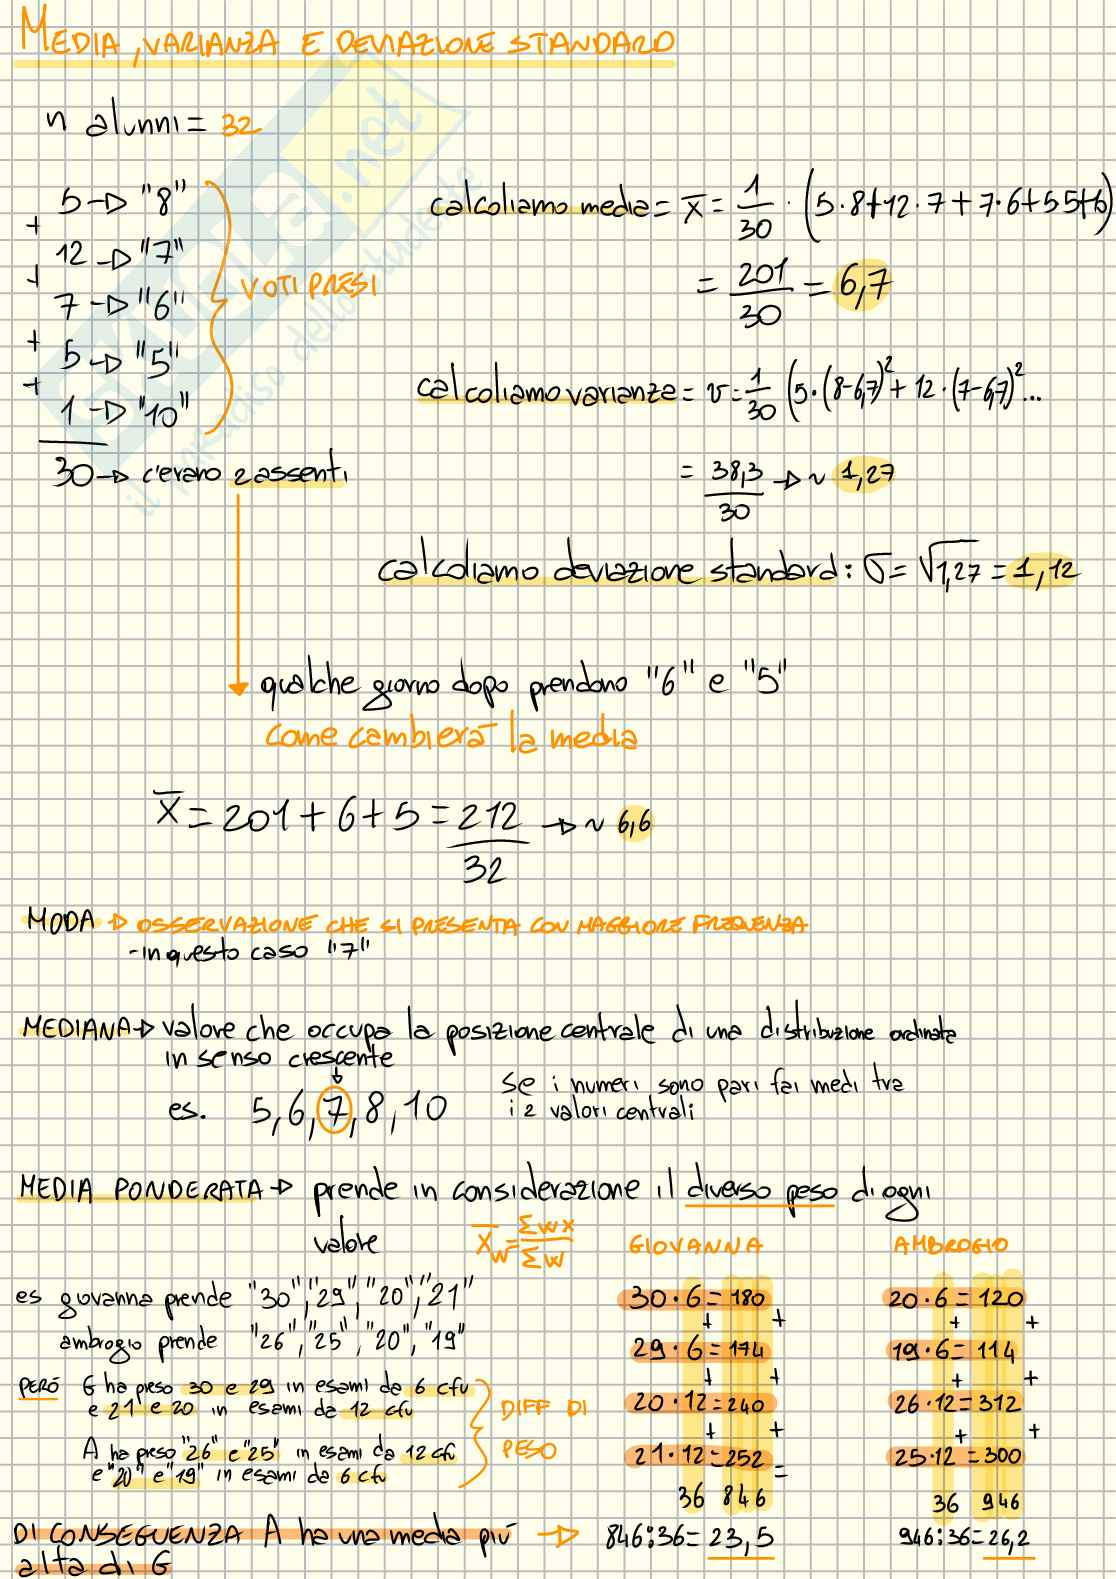 MEDIA, VARIANZA E DEVIAZIONE STANDARD
n alunni = 32
5 → "8"
+
12 → "7"
+
7 → "6"
+
5 → "5"
+
1 → "10"
VOTI PRESI
30 → c'erano 2 assenti
calcoliamo media = x̄ = 1/30 · (5·8+12·7+7·6+5 5+10)
= 201/30 = 6,7
calcoliamo varianza = v = 1/30 (5·(8-6,7)² + 12·(7-6,7)² ...
= 38,3/30 → ~ 1,27
calcoliamo deviazione standard: σ = √1,27 = 1,12
qualche giorno dopo prendono "6" e "5"
come cambierà la media
x̄ = 201 + 6 + 5 = 212/32 → ~ 6,6
MODA → OSSERVAZIONE CHE SI PRESENTA CON MAGGIORE FREQUENZA
- in questo caso "7"
MEDIANA → valore che occupa la posizione centrale di una distribuzione ordinata
in senso crescente
es. 5, 6, 7, 8, 10
se i numeri sono pari fai medi tra
i 2 valori centrali
MEDIA PONDERATA → prende in considerazione il diverso peso di ogni
valore
x̄w = Σwx/Σw
es giovanna prende "30", "29", "20", "21"
ambrogio prende "26", "25", "20", "19"
PERÒ G ha preso 30 e 29 in esami da 6 cfu
e 21 e 20 in esami da 12 cfu
A ha preso "26" e "25" in esami da 12 cfu
e "20" e "19" in esami da 6 cfu
DIFF DI
PESO
GIOVANNA
30·6 = 180
+ +
29·6 = 174
+ +
20·12 = 240
+ +
21·12 = 252 =
36 846
846:36 = 23,5
AMBROGIO
20·6 = 120
+ +
19·6 = 114
+ +
26·12 = 312
+ +
25·12 = 300
36 946
946:36 = 26,2
DI CONSEGUENZA A ha una media più →
alta di G
.net
il paradiso dello studente